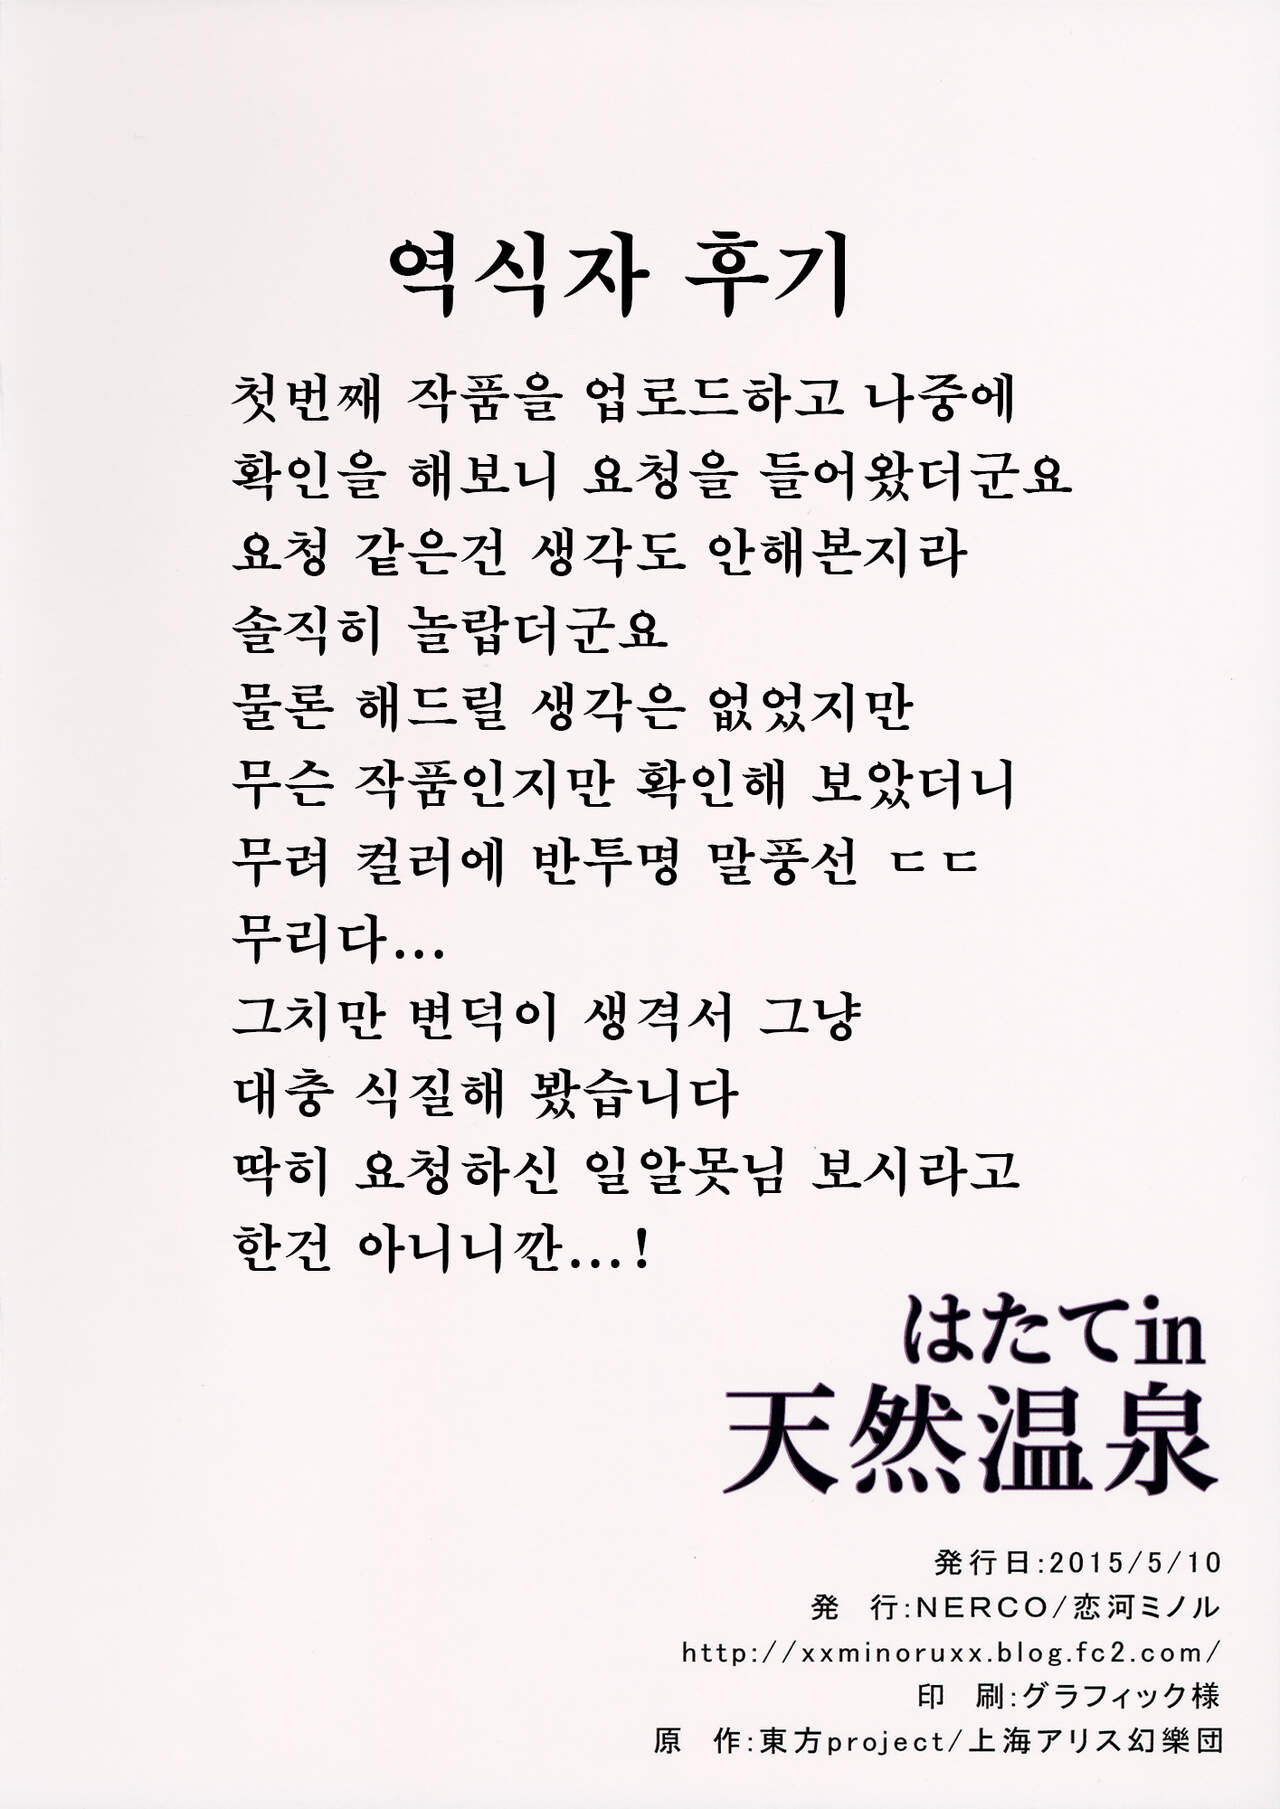 역식자 후기
첫번째 작품을 업로드하고 나중에
확인을 해보니 요청을 들어왔더군요
요청 같은건 생각도 안해본지라
솔직히 놀랍더군요
물론 해드릴 생각은 없었지만
무슨 작품인지만 확인해 보았더니
무려 컬러에 반투명 말풍선 ㄷㄷ
무리다...
그치만 변덕이 생격서 그냥
대충 식질해 봤습니다
딱히 요청하신 일알못님 보시라고
한건 아니니깐...!
はたてin
天然温泉
発行日:2015/5/10
発　行:NERCO/恋河ミノル
http://xxminoruxx.blog.fc2.com/
印　刷:グラフィック様
原　作:東方project/上海アリス幻樂団